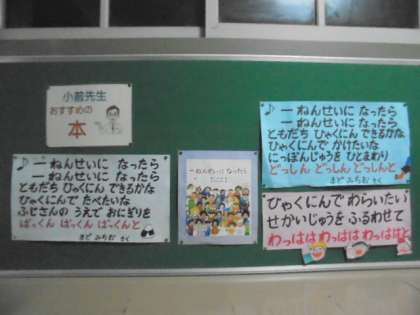 小前先生
おすすめの
本
♪ 一ねんせいに なったら
一ねんせいに なったら
ともだち ひゃくにん できるかな
ひゃくにんで たべたいな
ふじさんの うえで おにぎりを
ぱっくん ぱっくん ぱっくんと
まど みちお さく
一ねんせいに なったら
♪ 一ねんせいに なったら
一ねんせいに なったら
ともだち ひゃくにん できるかな
ひゃくにんで かけたいな
にっぽんじゅうを ひとまわり
どっしん どっしん どっしんと
まど みちお さく
ひゃくにんで わらいたい
せかいじゅうを ふるわせて
わっはは わっはは わっははと